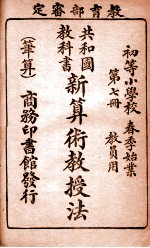 教育部審定
初等小學校 春季始業
第七冊 教員用
共和國
教科書
新算術教授法
(筆算)
商務印書館發行